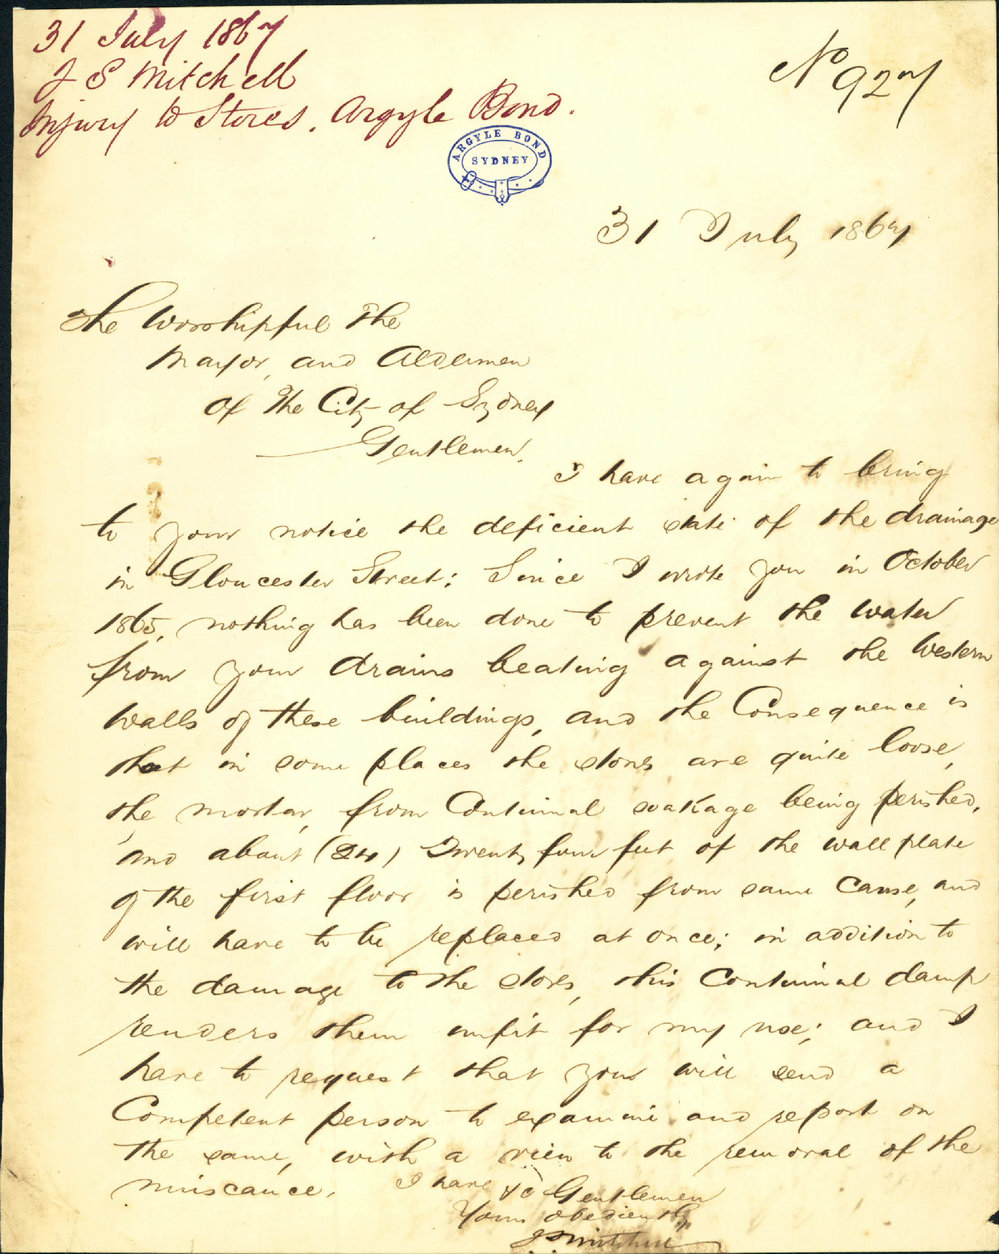 31 July 1867
J S Mitchell
Injury to Stores, Argyle Bond.
No 927
ARGYLE BOND
SYDNEY
31 July 1867
The Worshipful the
Mayor, and Aldermen
of the City of Sydney
Gentlemen,
I have again to bring
to your notice the deficient state of the drainage
in Gloucester Street: Since I wrote you in October
1865, nothing has been done to prevent the water
from your drains beating against the Western
walls of these buildings, and the Consequence is
that in some places the stones are quite loose,
the mortar, from Continual soakage being perished,
and about (24) Twenty four feet of the wall plate
of the first floor is perished from same Cause, and
will have to be replaced at once; in addition to
the damage to the stores, this Continual damp
renders them unfit for my use; and I
have to request that you will send a
Competent person to examine and report on
the same, with a view to the removal of the
nuiscance. I have &c Gentlemen
Yours obediently
J S Mitchell